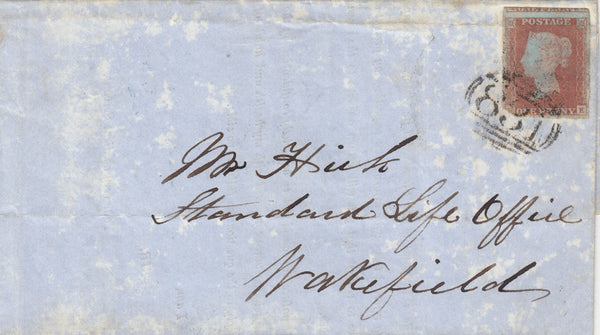 POSTAGE
ONE PENNY
Mr Hick
Standard Life Office
Wakefield